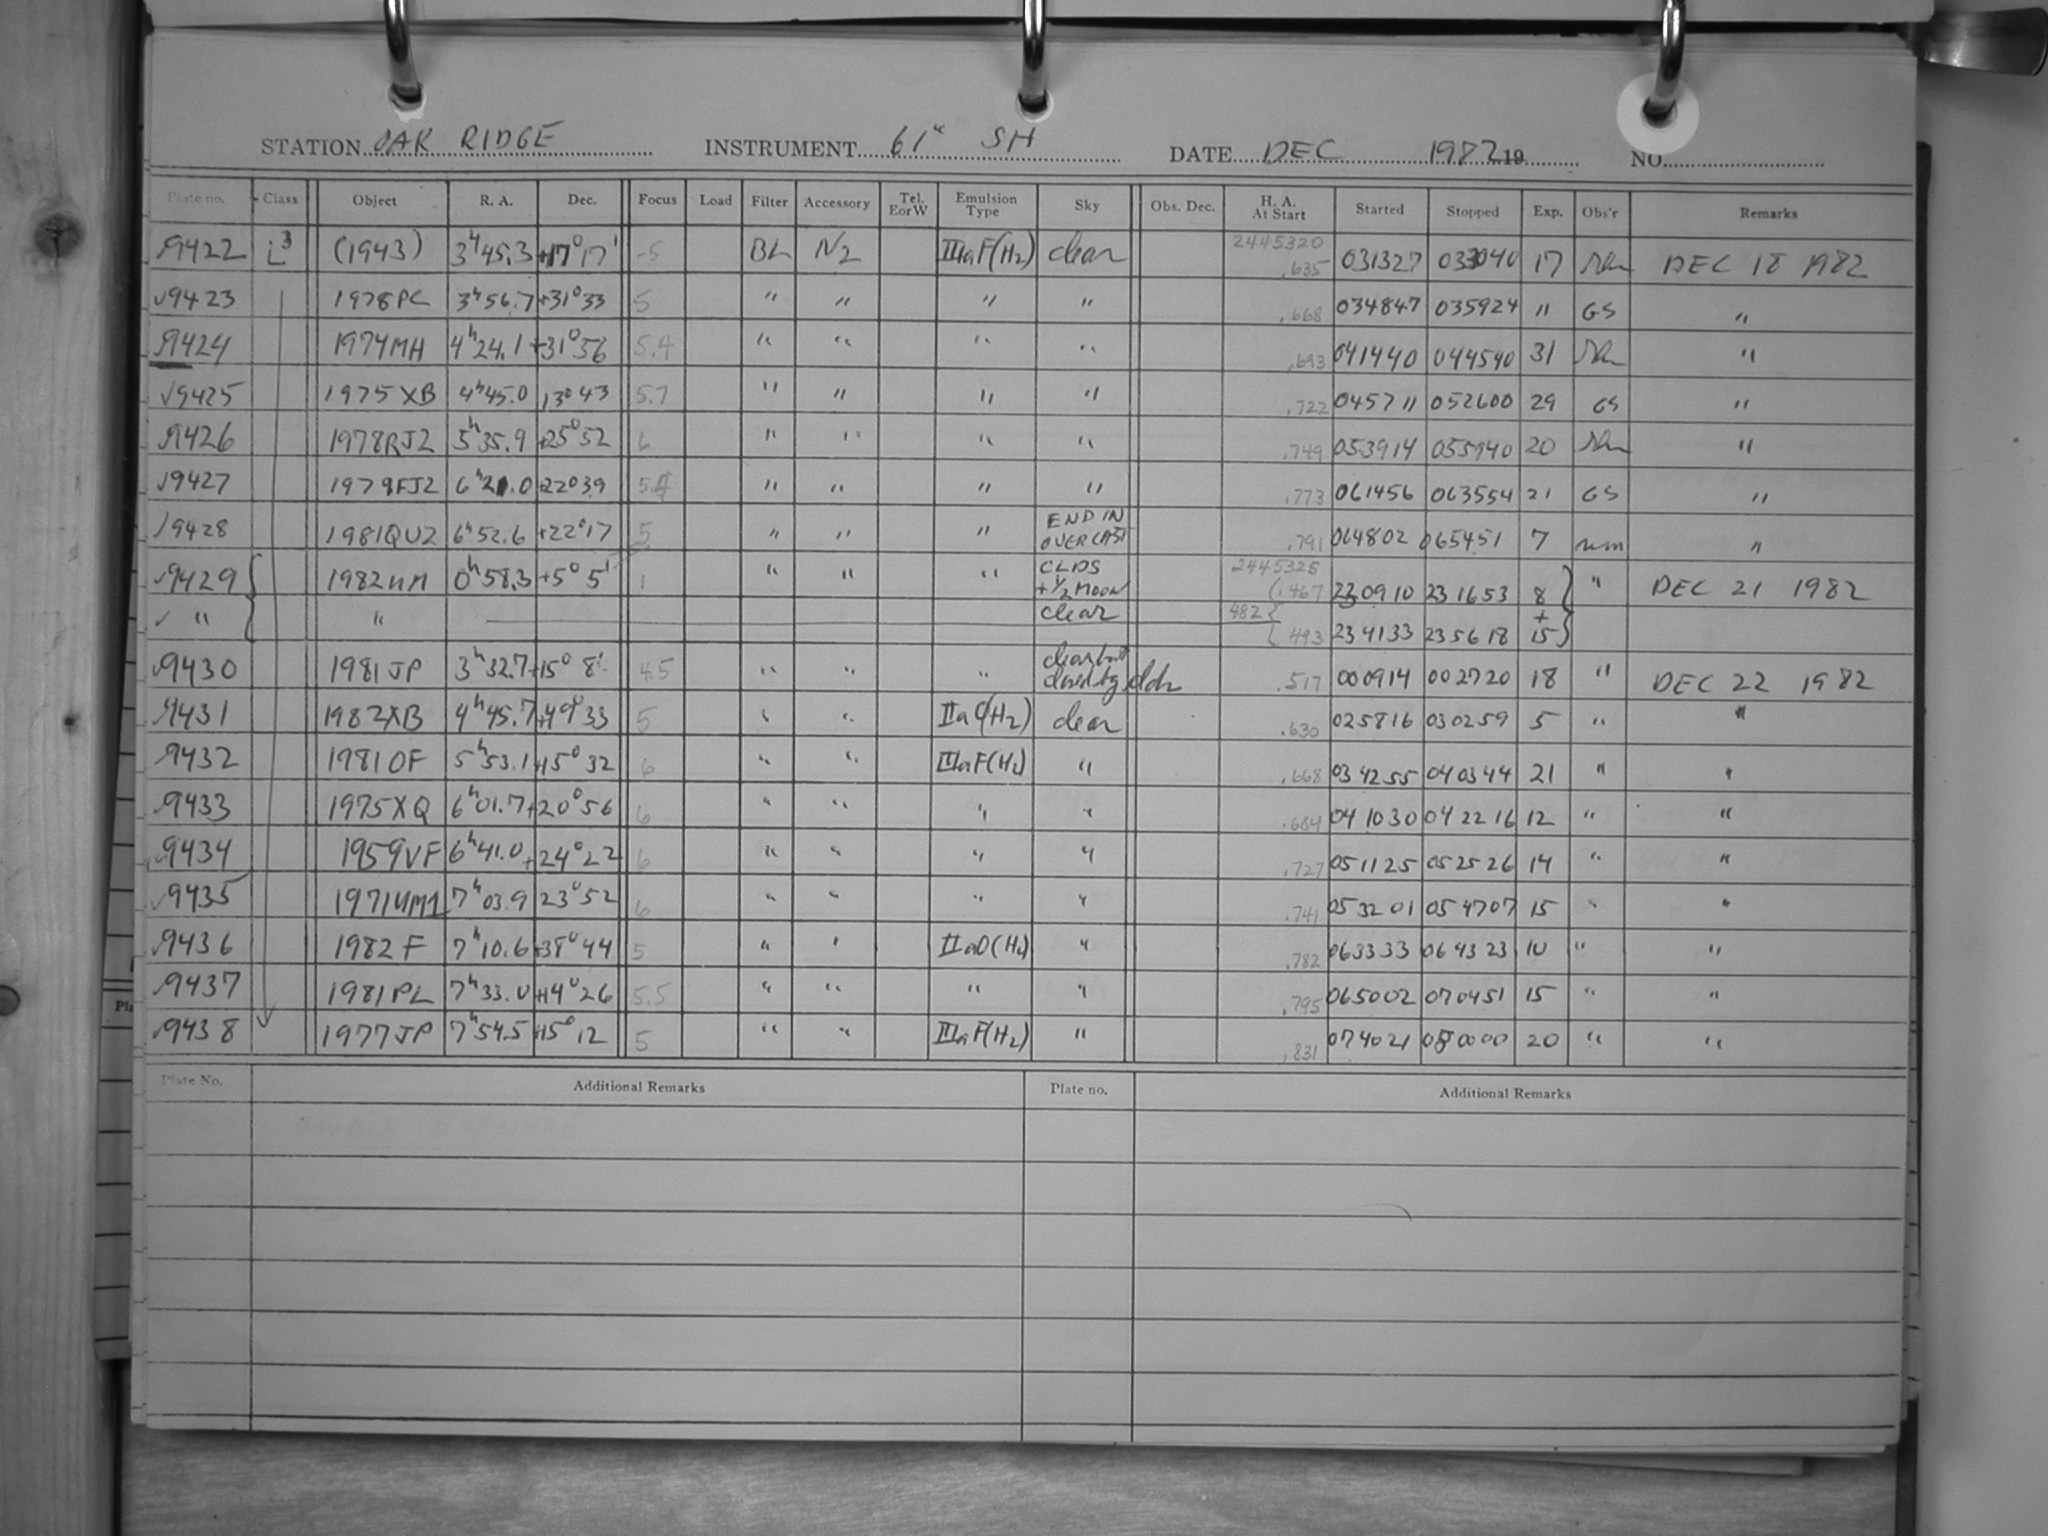 STATION OAK RIDGE INSTRUMENT 61" SH DATE DEC 1982 19 NO.
Plate no. Class Object R. A. Dec. Focus Load Filter Accessory Tel. E or W Emulsion Type Sky Obs. Dec. H. A. At Start Started Stopped Exp. Obs'r Remarks
9422 L3 (1943) 3h45.3 +17°17' 5 BL N2 IIIaF(H2) clear 2445320 .635 031327 033040 17 DEC 18 1982
9423 1978PC 3h56.7 +31°33 5 " " " " .668 034847 035924 11 GS "
9424 1974MH 4h24.1 +31°56 5.4 " " " " .693 041440 044540 31 "
9425 1975XB 4h45.0 13°43 5.7 " " " " .722 045711 052600 29 GS "
9426 1978RJ2 5h35.9 +25°52 6 " " " " .749 053914 055940 20 "
9427 1979FJ2 6h21.0 +22°39 " " " " .773 061456 063554 21 GS "
9428 1981QU2 6h52.6 +22°17 5 " " " END IN OVERCAST .791 064802 065451 7 "
9429 0h58.3 +5°5' 1 " " " CLDS +1/2 MOON 2445325 .467 230910 231653 8 " DEC 21 1982
" " clear 482 .493 234133 235618 + 15
9430 1981JP 3h32.7 +15°8' 4.5 " " " .517 000914 002720 18 " DEC 22 1982
9431 1982XB 4h45.7 +49°33 5 " " IIaO(H2) clear .630 025816 030259 5 " "
9432 1981OF 5h53.1 +15°32 6 " " IIIaF(H2) " .668 034255 040344 21 " "
9433 1975XQ 6h01.7 +20°56 6 " " " " .684 041030 042216 12 " "
9434 1959VF 6h41.0 +24°22 6 " " " " .727 051125 052526 14 " "
9435 1971UM1 7h03.9 23°52 6 " " " " .741 053201 054707 15 " "
9436 1982F 7h10.6 +38°44 5 " " IIaO(H2) " .782 063333 064323 10 " "
9437 1981PL 7h33.0 +14°26 5.5 " " " " .795 065002 070451 15 " "
9438 1977JP 7h54.5 +15°12 5 " " IIIaF(H2) " .831 074021 080000 20 " "
Plate No. Additional Remarks Plate no. Additional Remarks